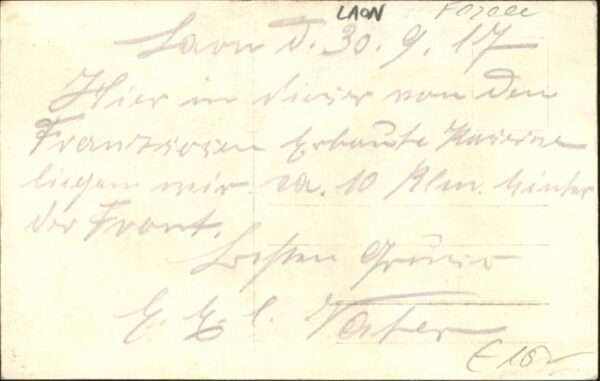 LAON
Laon d. 30. 9. 17
Hier in dieser von den
Franzosen Erbaute Kaserne
liegen wir ca. 10 Klm. hinter
der Front.
Besten Grüsse
E. E. l. Vater
€ 16